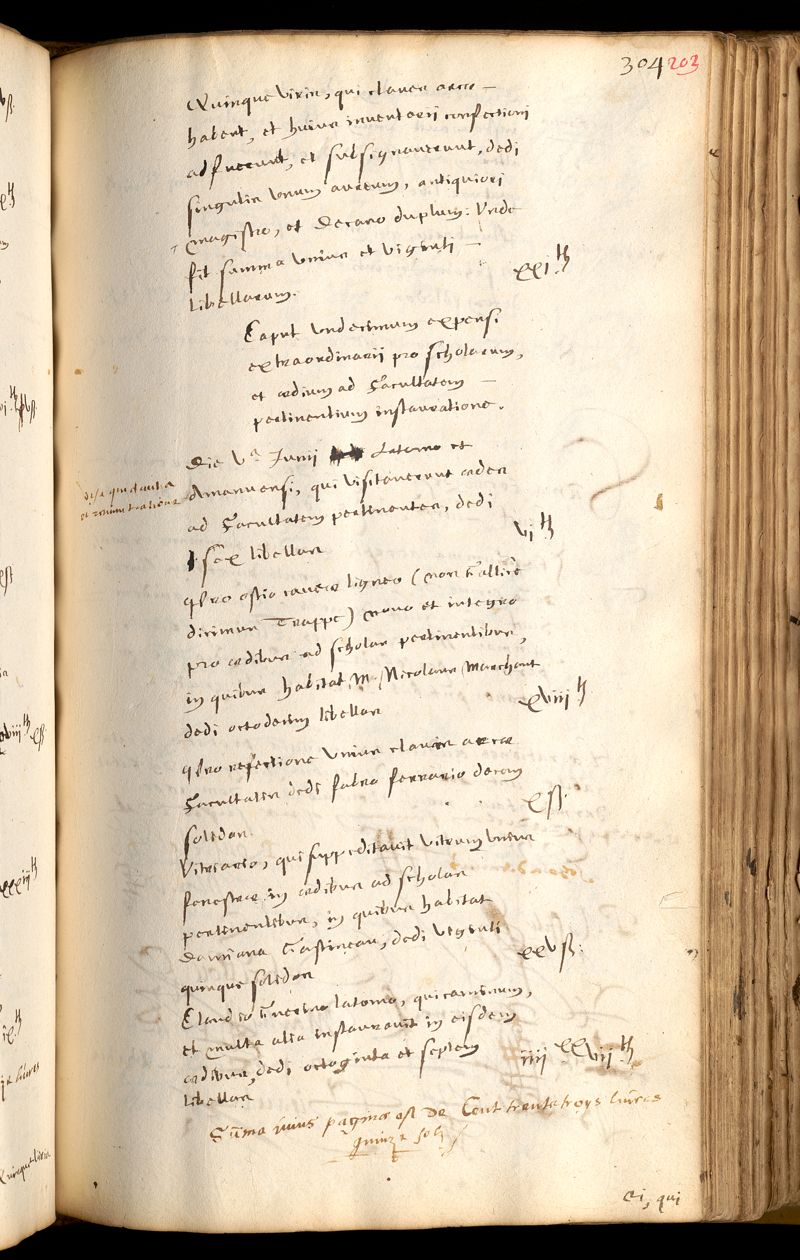 304 203
Quinque viris, qui claves arcæ —
habent, et huius inventarij confectioni
adfuerunt, et subsignaverunt, dedi
singulis unum aureum, antiquiori
magistro, et Decano duplum: Unde
fit summa unius et viginti —
libellarum. xxi ℔
Caput undecimum expensi
extraordinarij pro scholarum,
et ædium ad Facultatem —
pertinentium instauratione.
Die Vᵃ Junij Latomo et
Amanuensi, qui visitaverunt ædes
ad Facultatem pertinentes, dedi
sex libellas vi ℔
Pro ostio caveæ ligneo (nos Gallicè
dicimus Trappe) novo et integro
pro ædibus ad scholas pertinentibus,
in quibus habitat M. Nicolaus Marchant
dedi octodecim libellas xviij ℔
Pro refectione unius clavis arcæ
Facultatis dedi fabro ferrario decem
solidos. xß
Vitriario, qui suppeditavit vitrum unius
fenestræ in ædibus ad scholas
pertinentibus, in quibus habitat
Gastineau, dedi viginti
quinque solidos xxvß.
Claudio latomo, qui caminum,
et multa alia instauravit in eisdem
ædibus, dedi octoginta et septem
libellas iiij xx vij ℔
Summa huius paginæ est de Cent trente troys livres
quinze solz
Ei, qui